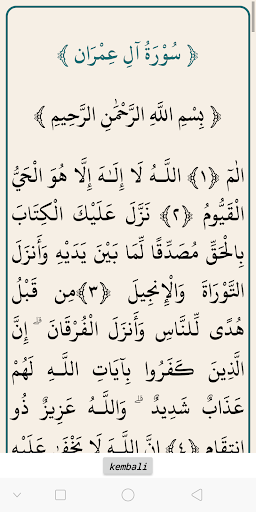 ﴿ سُوْرَةُ آلِ عِمْرَان ﴾
﴿ بِسْمِ اللَّهِ الرَّحْمَٰنِ الرَّحِيمِ ﴾
الٓمٓ ﴿١﴾ اللَّـهُ لَا إِلَـٰهَ إِلَّا هُوَ الْحَيُّ
الْقَيُّومُ ﴿٢﴾ نَزَّلَ عَلَيْكَ الْكِتَابَ
بِالْحَقِّ مُصَدِّقًا لِّمَا بَيْنَ يَدَيْهِ وَأَنزَلَ
التَّوْرَاةَ وَالْإِنجِيلَ ﴿٣﴾ مِن قَبْلُ
هُدًى لِّلنَّاسِ وَأَنزَلَ الْفُرْقَانَ ۗ إِنَّ
الَّذِينَ كَفَرُوا بِآيَاتِ اللَّـهِ لَهُمْ
عَذَابٌ شَدِيدٌ ۗ وَاللَّـهُ عَزِيزٌ ذُو
انتِقَامٍ ﴿٤﴾ إِنَّ اللَّـهَ لَا يَخْفَىٰ عَلَيْهِ
kembali